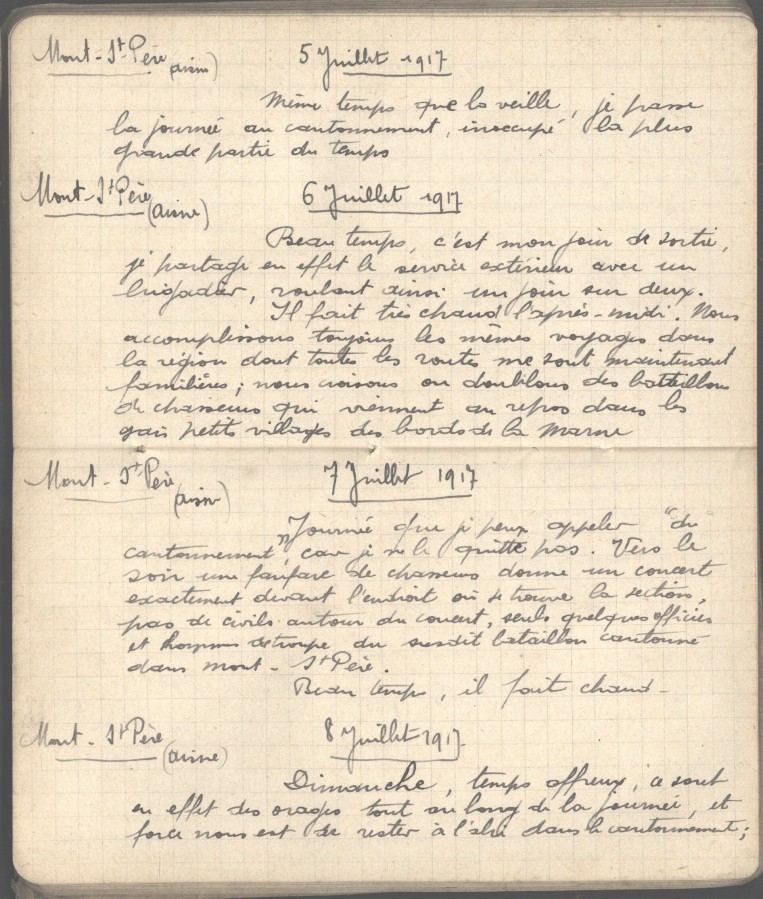 Mont-St-Père (aisne) 5 Juillet 1917
Même temps que la veille, je passe
la journée au cantonnement, inoccupé la plus
grande partie du temps
Mont-St Père (aisne) 6 Juillet 1917
Beau temps, c'est mon jour de sortie,
je partage en effet le service extérieur avec un
brigadier, roulant ainsi un jour sur deux.
Il fait très chaud l'après-midi. Nous
accomplissons toujours les mêmes voyages dans
la région dont toutes les routes me sont maintenant
familières ; nous croisons ou doublons des bataillons
de chasseurs qui viennent au repos dans les
gais petits villages des bords de la Marne
Mont-St Père (aisne) 7 Juillet 1917
Journée que je peux appeler "du
cantonnement", car je ne le quitte pas. Vers le
soir une fanfare de chasseurs donne un concert
exactement devant l'endroit où se trouve la section,
pas de civils autour du concert, seuls quelques officiers
et hommes de troupe du susdit bataillon cantonné
dans Mont-St Père.
Beau temps, il fait chaud -
Mont-St Père (aisne) 8 Juillet 1917.
Dimanche, temps affreux, ce sont
en effet des orages tout au long de la journée, et
force nous est de rester à l'abri dans le cantonnement ;